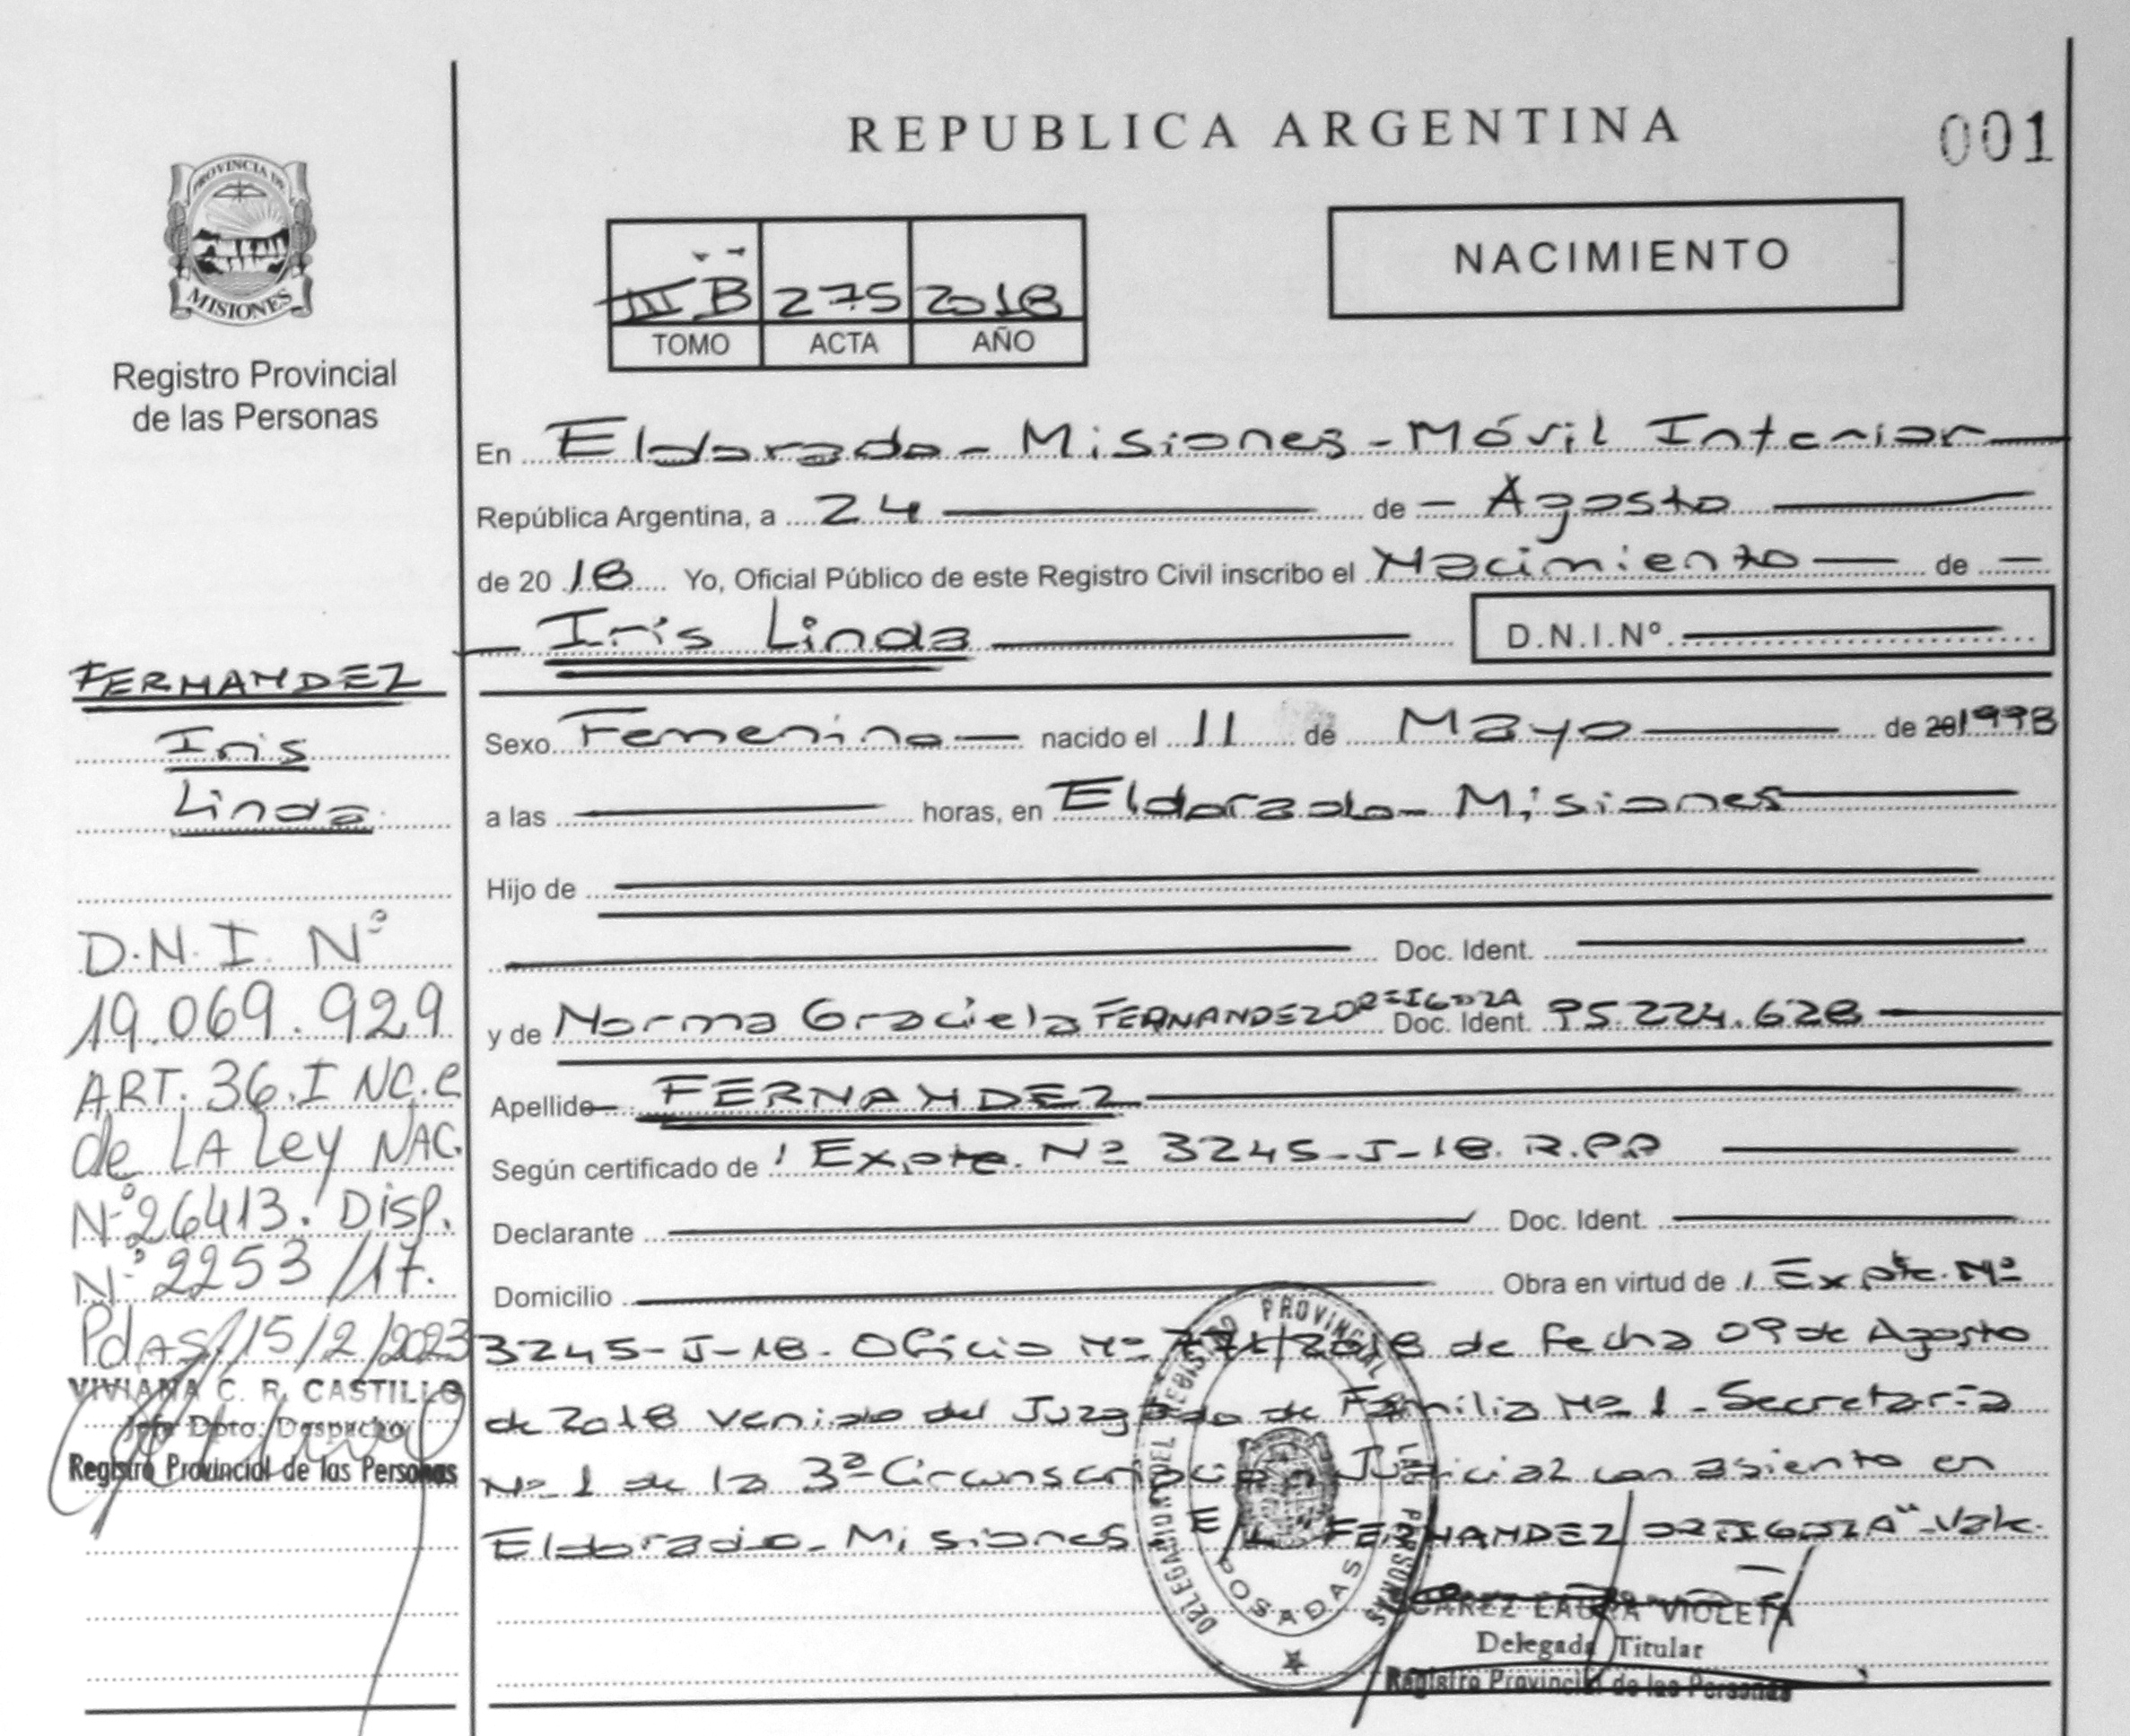 REPUBLICA ARGENTINA
001
PROVINCIA DE
MISIONES
Registro Provincial
de las Personas
NACIMIENTO
III B 275 2018
TOMO ACTA AÑO
En Eldorado - Misiones - Móvil Interior
República Argentina, a 24 de - Agosto
de 20 18 Yo, Oficial Público de este Registro Civil inscribo el Nacimiento de
Iris Linda D.N.I.Nº
Sexo Femenino nacido el 11 de Mayo de 20 1998
a las horas, en Eldorado - Misiones
Hijo de
Doc. Ident.
y de Norma Graciela FERNANDEZ ORTIGOZA Doc. Ident. 95.224.628
Apellido FERNANDEZ
Según certificado de Expte. Nº 3245-J-18. R.P.P
Declarante Doc. Ident.
Domicilio Obra en virtud de Expte. Nº
3245-J-18. Oficio Nº 771/2018 de fecha 09 de Agosto
de 2018 venido del Juzgado de Familia Nº 1 - Secretaría
Nº 1 de la 3ª Circunscripción Judicial con asiento en
Eldorado - Misiones E/ "FERNANDEZ ORTIGOZA" - Vale.
FERNANDEZ
Iris
Linda
D.N.I. Nº
19.069.929
ART. 36. INC. C
de LA Ley NAC.
Nº 26413. Disp.
Nº 2253/17.
Pdas/15/2/2023
VIVIANA C. R. CASTILLO
Jefe Dpto. Despacho
Registro Provincial de las Personas
DELEGACION DEL REGISTRO PROVINCIAL DE LAS PERSONAS
POSADAS
LAURA VIOLETA
Delegada Titular
Registro Provincial de las Personas